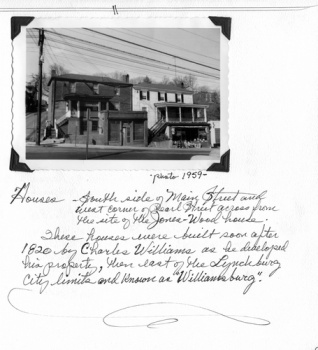 - photo 1959 -
Houses - South side of Main Street and
west corner of Pearl Street across from
the site of the Jones-Wood house.
These houses were built soon after
1820 by Charles Williams as he developed
his property, then east of the Lynchburg
City limits and known as "Williamsburg".